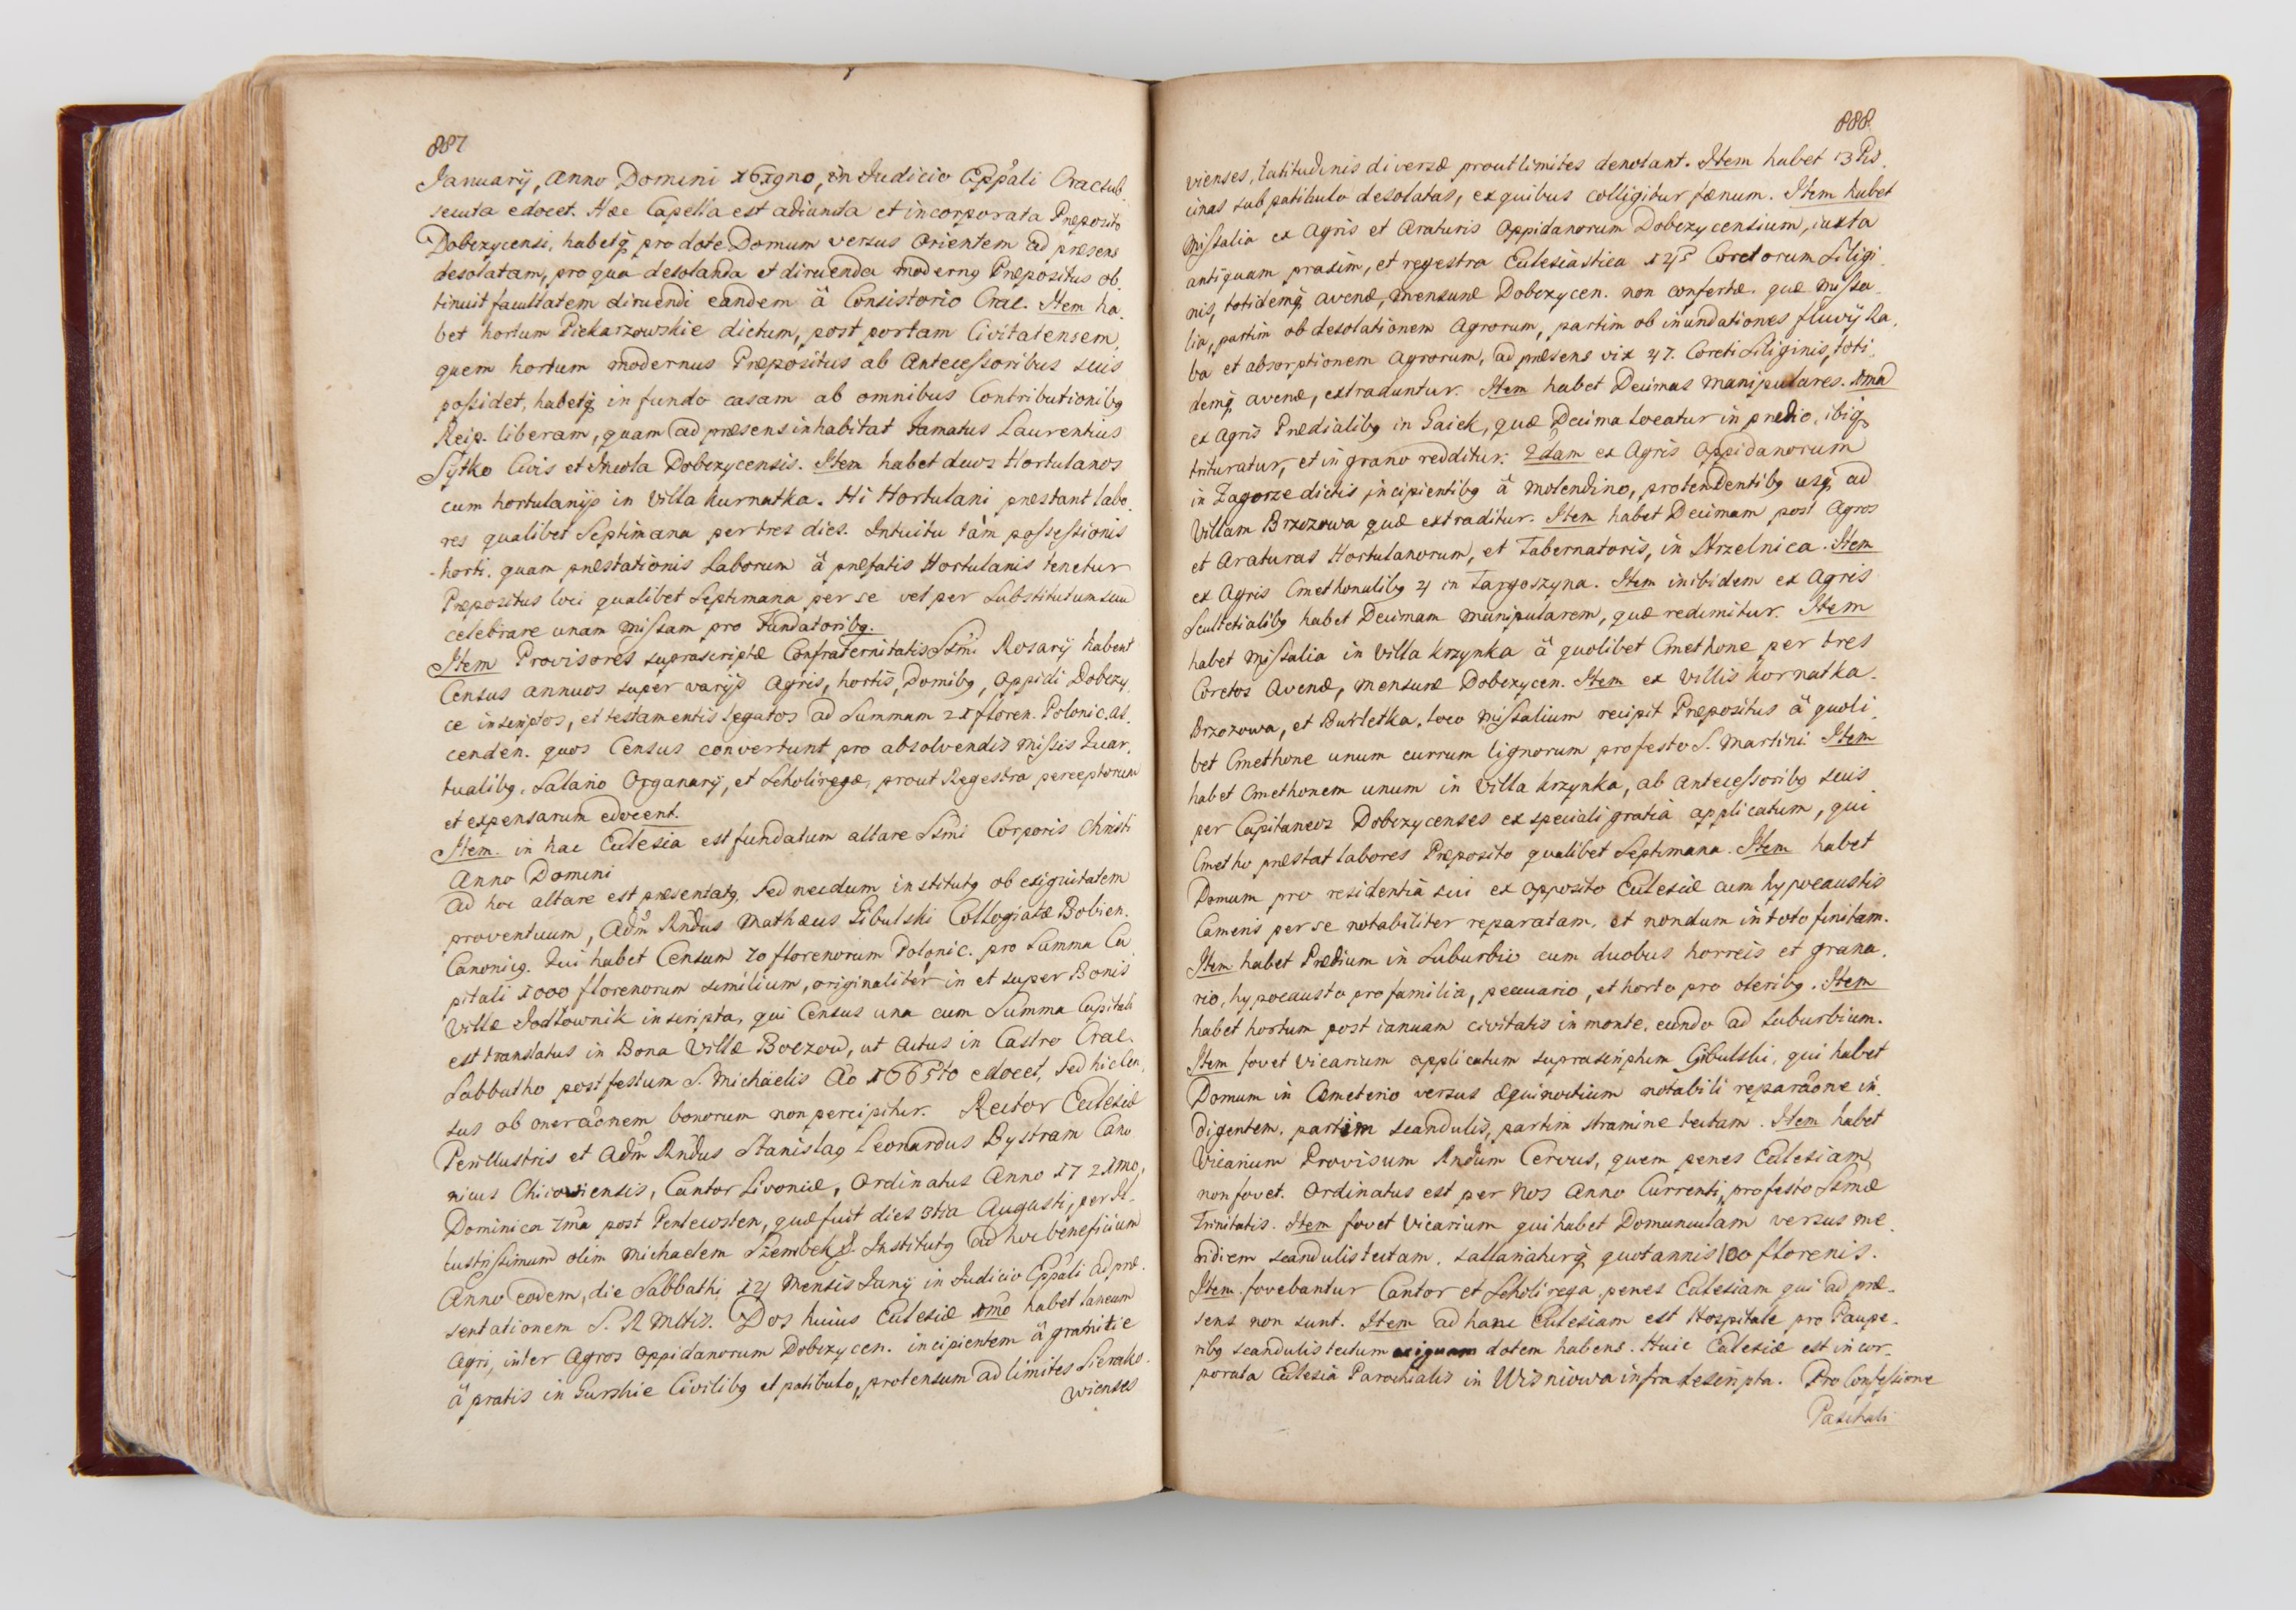 887
Januarij, Anno Domini 1619no, in Judicio Eppali Crac sub-
secuta edocet. Hæc Capella est adiuncta et incorporata Præposito
Dobczycensi, habetq; pro dote Domum versus Orientem ad præsens
desolatam, pro qua desolanda et diruenda modernq Præpositus ob-
tinuit facultatem diruendi eandem â Consistorio Crac. Item ha-
bet hortum Piekarzowskie dictum, post portam Civitatensem,
quem hortum modernus Præpositus ab Antecessoribus suis
possidet, habetq; in fundo casam ab omnibus Contributionibq
Reip. liberam, quam ad præsens inhabitat famatus Laurentius
Sytko Civis et Incola Dobczycensis. Item habet duos Hortulanos
cum hortulanijs in Villa kurnatka. Hi Hortulani præstant labo-
res qualibet Septimana per tres dies. Intuitu tàm possessionis
horti, quam præstationis Laborum â præfatis Hortulanis tenetur
Præpositus loci qualibet Septimana per se vel per Substitutum suu
celebrare unam Missam pro Fundatoribq.
Item Provisores suprascriptæ Confraternitatis Ssmi Rosarij habent
Census annuos super varijs Agris, hortis, Domibq, Oppidi Dobczy-
ce inscriptos, et testamentis legatos ad Summam 21 floren. Polonic. as-
cenden. quos Census convertunt pro absolvendis Missis Quar-
tualibq, Salario Organarij, et Scholiregæ, prout Regestra perceptorum
et expensarum edocent.
Item. in hac Ecclesia est fundatum altare Ssmi Corporis Christi
Anno Domini
Ad hoc altare est præsentatq, sed necdum institutq ob exiguitatem
proventuum, Adm Rndus Mathæus Gibulski Collegiatæ Bobien.
Canonicq. Qui habet Censum 70 florenorum Polonic. pro Summa Ca
pitali 1000 florenorum similium, originaliter in et super Bonis
Villæ Jodłownik inscripta, qui Census una cum Summa Capitali
est translatus in Bona Villæ Boczow, ut Actus in Castro Crac.
Sabbatho post festum S. Michaëlis Ao 1665to edocet, sed hic Cen-
sus ob oneraonem bonorum non percipitur. Rector Ecclesiæ
Perillustris et Adm Rndus Stanislaq Leonardus Bystram Cano
nicus Chioviensis, Cantor Livoniæ, Ordinatus Anno 1721mo,
Dominica 7ma post Pentecosten, quæ fuit dies 3tia Augusti, per Il-
lustrissimum olim Michaelem Szembek S. Institutq ad hoc beneficium
Anno eodem, die Sabbathi 14 Mensis Junij in Judicio Eppali ad præ-
sentationem S. R Mttis. Dos huius Ecclesiæ 1mo habet laneum
Agri, inter Agros Oppidanorum Dobczycen. incipientem â granitie
â pratis in Gurskie Civilibq et patibulo, protensum ad limites Sierako-
wienses
888
vienses, latitudinis diversæ prout limites denotant. Item habet 3 Pis-
cinas sub patibulo desolatas, ex quibus colligitur fænum. Item habet
Missalia ex Agris et Araturis Oppidanorum Dobczycensium, iuxta
antiquam praxim, et regestra Ecclesiastica Coretorum Siligi-
nis, totidemq; avenæ, mensuræ Dobczycen. non confertæ. quæ Missa-
lia, partim ob desolationem Agrorum, partim ob inundationes fluvij Ra-
ba et absorptionem Agrorum, ad præsens vix 47. Coreti Siliginis, toti-
demq; avenæ, extraduntur. Item habet Decimas Manipulares. 1ma
ex Agris Prædialibq in Gaiek, quæ Decima locatur in prædio, ibiq;
trituratur, et in grano redditur. 2dam ex Agris Oppidanorum
in Zagorze dictis incipientibq â Molendino, protendentibq usq; ad
Villam Brzozowa quæ extraditur. Item habet Decimam post Agros
et Araturas Hortulanorum, et Tabernatoris, in Strzelnica. Item
ex Agris Cmethonalibq 4 in Targoszyna. Item inibidem ex Agris
Scultetialibq habet Decimam Manipularem, quæ redimitur. Item
habet Missalia in Villa krzynka â quolibet Cmethone per tres
Coretos Avenæ, mensuræ Dobczycen. Item ex Villis kornatka,
Brzozowa, et Burletka, loco Missalium recipit Præpositus â quoli-
bet Cmethone unum currum lignorum pro festo S. Martini. Item
habet Cmethonem unum in Villa krzynka, ab Antecessoribq suis
per Capitaneos Dobczycenses ex speciali gratia applicatum, qui
Cmetho præstat labores Præposito qualibet Septimana. Item habet
Domum pro residentia sui ex opposito Ecclesiæ cum hypocaustis
Cameris per se notabiliter reparatam, et nondum in toto finitam.
Item habet Prædium in Suburbio cum duobus horreis et grana-
rio, hypocausto pro familia, pecuario, et horto pro oleribq. Item
habet hortum post ianuam civitatis in monte, eundo ad suburbium.
Item fovet Vicarium applicatum suprascriptum Gibulski, qui habet
Domum in Cæmeterio versus Æquinoctium notabili reparaone in-
digentem, partim scandulis, partim stramine tectam. Item habet
Vicarium Provisum Rndum Cervus, quem penes Ecclesiam
non fovet. Ordinatus est per Nos Anno Currenti, pro festo Ssmæ
Trinitatis. Item fovet Vicarium qui habet Domunculam versus me-
ridiem scandulis tectam, sallariaturq; quotannis 100 florenis.
Item fovebantur Cantor et Scholirega penes Ecclesiam qui ad præ-
sens non sunt. Item ad hanc Ecclesiam est Hospitale pro Paupe-
ribq scandulis tectum exiguam dotem habens. Huic Ecclesiæ est incor-
porata Ecclesia Parochialis in Wisniowa infra descripta. Pro Confessione
Paschali